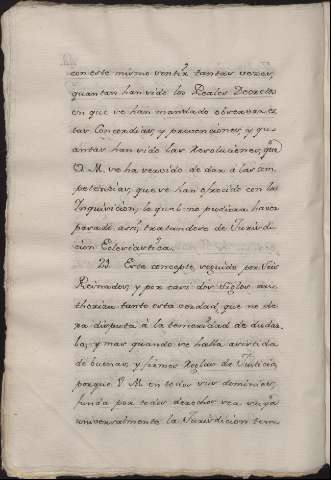 con este mismo sentir tantas vezes,
quantas han sido los Reales Decretos
en que se han mandado observar es-
tas Concordias, y prevenciones, y qu-
antas han sido las Resoluciones, que
V. M. se ha servido de dar á las com-
petencias, que se han ofrecido con la
Inquisicion, lo qual no pudiera haver
pasado assi, tratandose de Jurisdi-
cion Eclesiastica.
21 Este concepto seguido por seis
Reinados, y por casi dos siglos au-
thoriza tanto esta verdad, que no de-
xa disputa á la temeridad de dudar-
la, y mas quando se halla asistida
de buenas, y firmes Reglas de Justicia,
porque V. M. en todos sus dominios,
funda por todos derechos ser suya
universalmente la Jurisdicion tem-